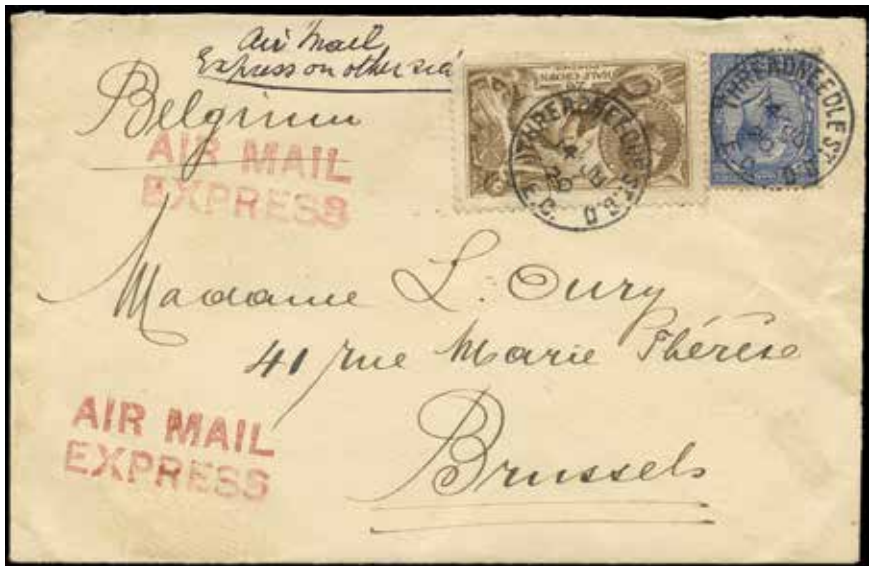 Air Mail
Express on other side
Belgium
AIR MAIL
EXPRESS
HALF CROWN
THREADNEEDLE ST.
B.O.
E.C.
14 JU
20
THREADNEEDLE ST.
B.O.
E.C.
14 JU
20
Madame L. Oury
41 rue Marie Thérèse
AIR MAIL
EXPRESS
Brussels